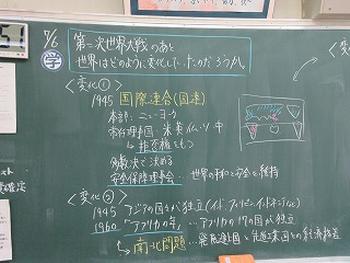 7/6
学 第二次世界大戦のあと
世界はどのように変化していったのだろうか。
<変化①>
1945 国際連合(国連)
本部:ニューヨーク
常任理事国…米英仏ソ中
→拒否権をもつ
多数決で決める
安全保障理事会…世界の平和と安全を維持
<変化②>
1945 アジアの国々が独立(インド、フィリピン、インドネシアなど)
1960 「アフリカの年」…アフリカの17の国が独立
→南北問題…発展途上国と先進工業国との経済格差
<変